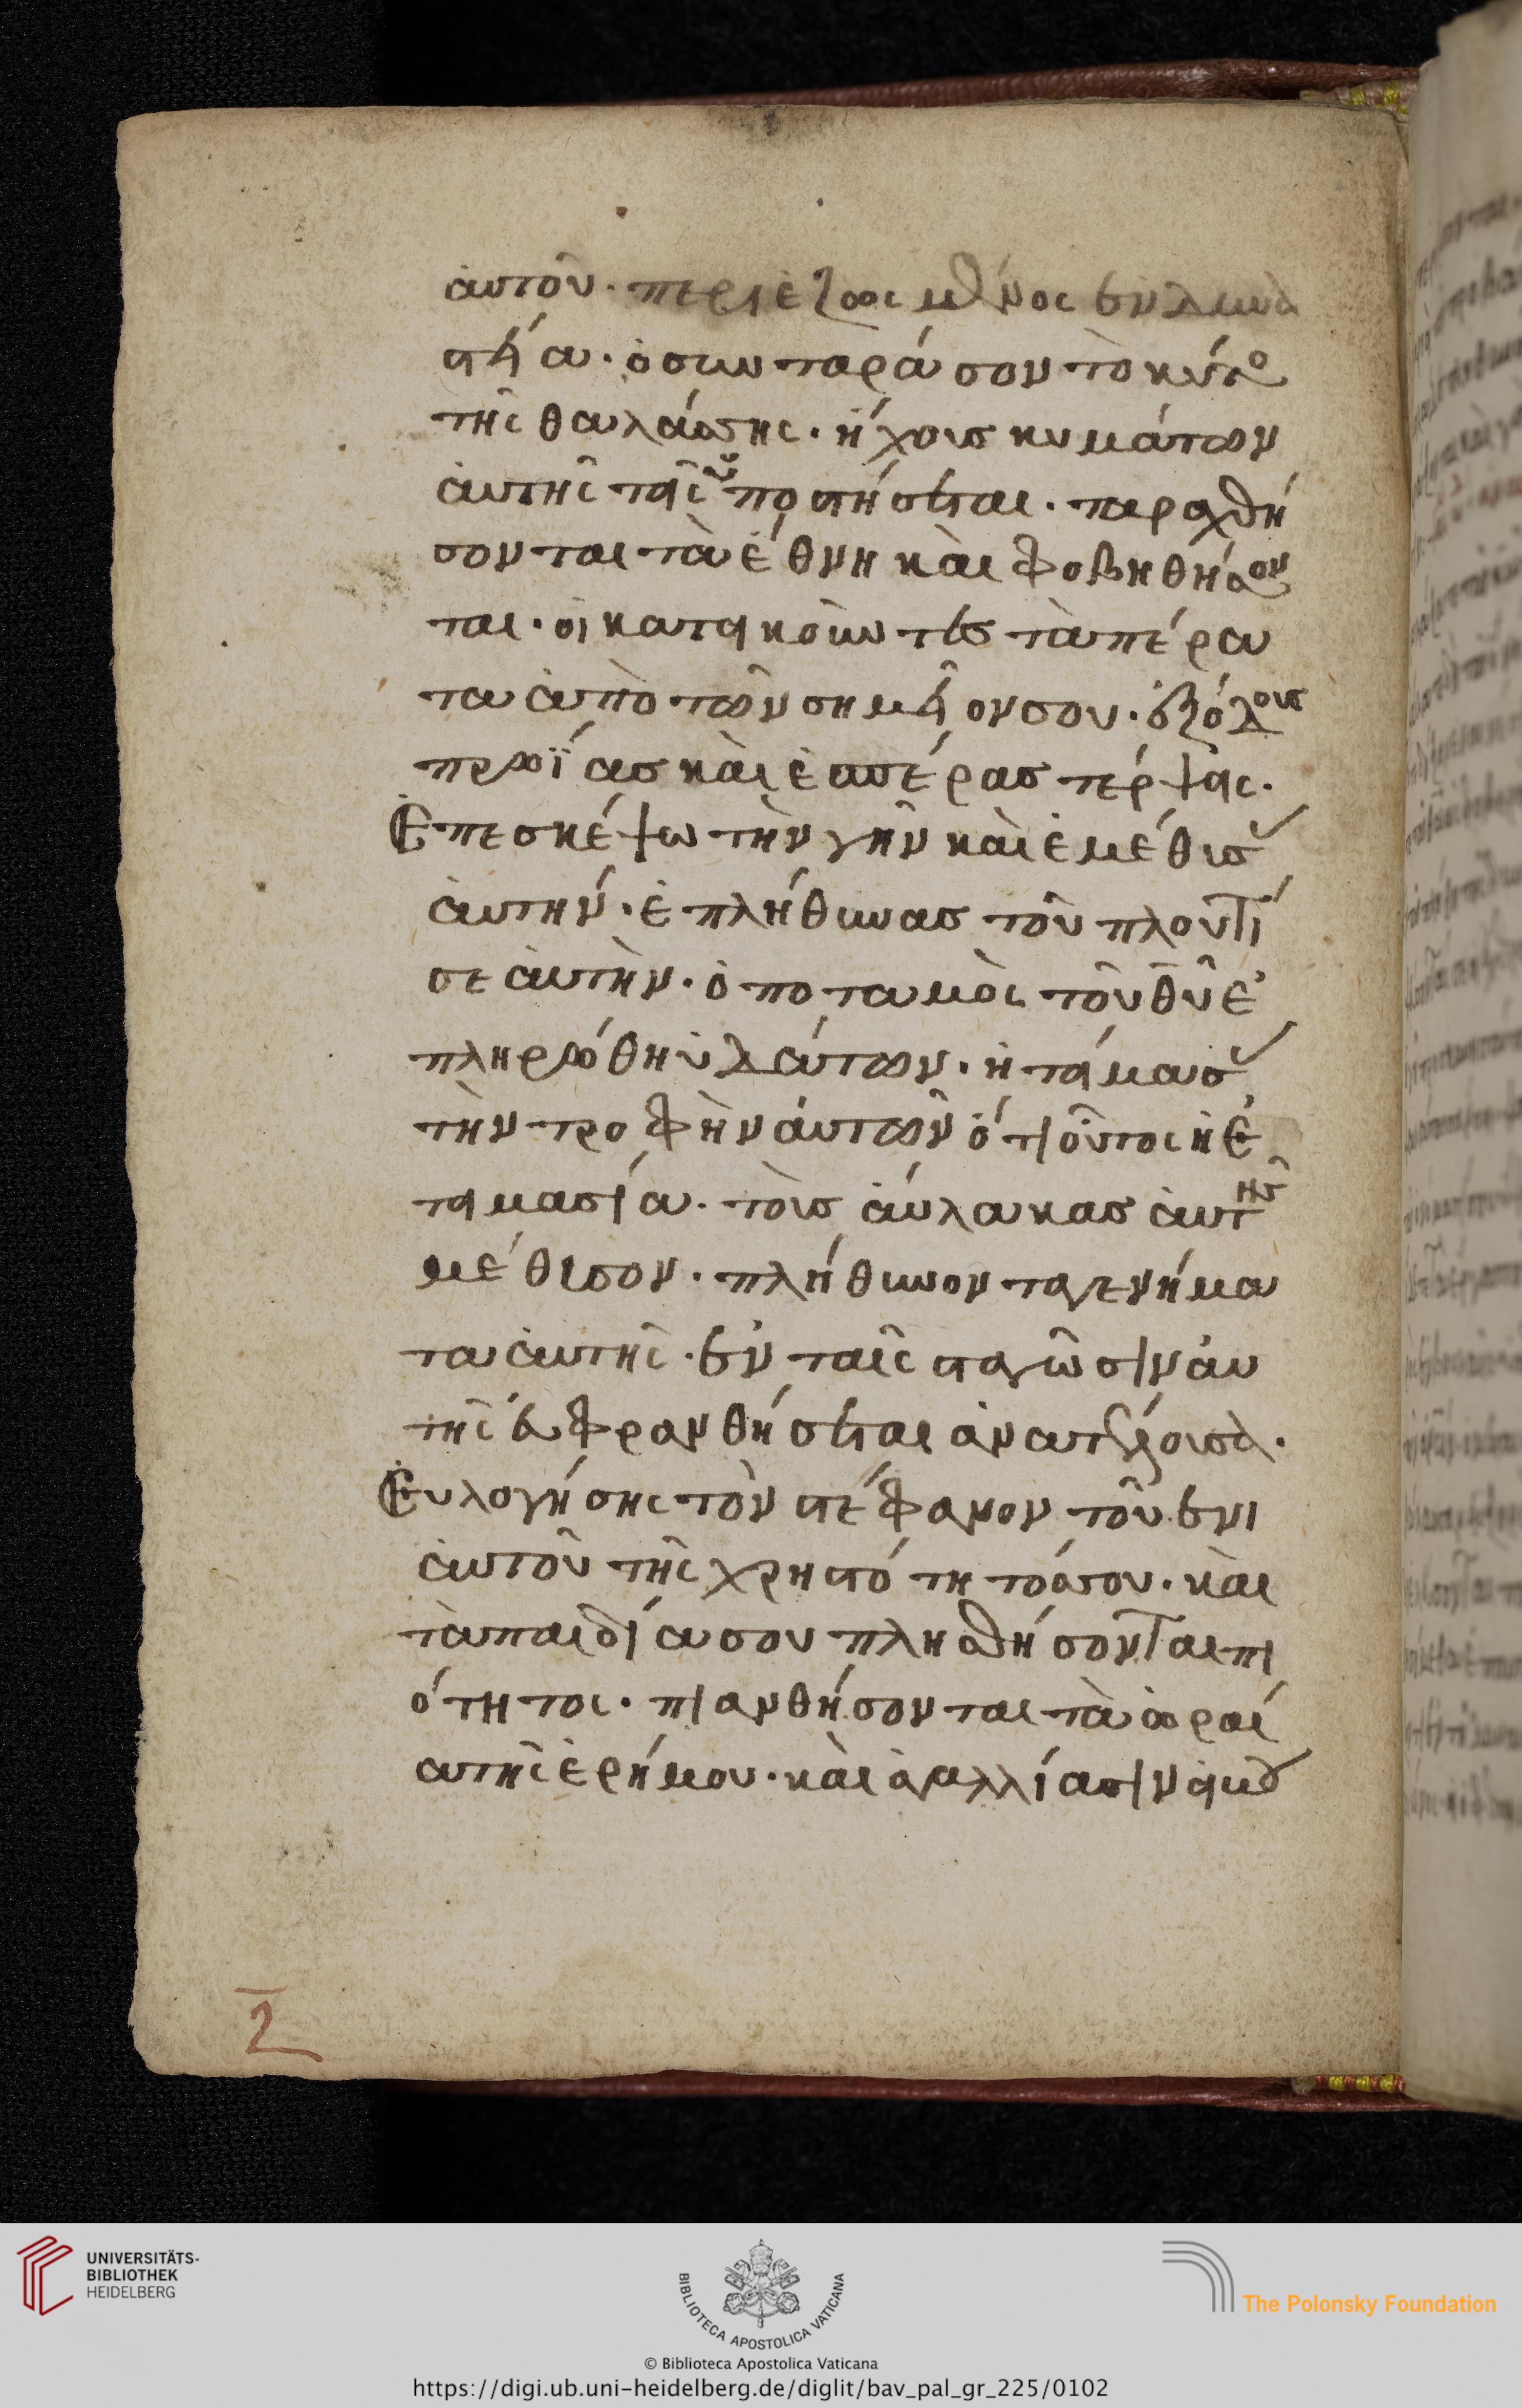 ἀυτοῦ. περιεζωσμένος ἐν δυνα
στεία. ὁ συνταράσσων τὸ κύτο
τῆς θαλάσσης. ἤχους κυμάτων
ἀυτῆς τίς ὑποστήσεται. ταραχθή
σονται τὰ ἔθνη καὶ φοβηθήσον
ται. οἱ κατοικοῦντες τὰ πέρα
τα ἀπὸ τῶν σημείον σου. ἐξόδους
πρωΐας καὶ ἑσπέρας τέρψεις.
Ἐπεσκέψω τὴν γῆν καὶ ἐμέθισ
ἀυτήν. ἐπλήθυνας τοῦ πλουτί
σε ἀυτὴν. ὁ ποταμὸς τοῦ θῦ ἐ
πληρώθη ὑδάτων. ἡτοίμασ
τὴν τροφὴν ἀυτῶν ὅτι οὕτος ἡ ἐ
τοιμασία. τοὺς ἀύλακας ἀυτῆς
μέθισον. πλήθυνον τα γενήμα
τα ἀυτῆς. ἐν ταῖς σταγῶσιν ἀυ
τῆς ἐυφρανθήσεται ἀνατέλουσα.
Ἐυλογήσης τὸν στέφανον τοῦ ἐνι
ἀυτοῦ τῆς χρηστότητός σου. καὶ
τὰ παιδία σου πλησθήσονται πι
ότητος. πιανθήσονται τὰ ὡραί
α τῆς ἐρήμου. καὶ ἀγαλλίασιν οἱ
2
UNIVERSITÄTS-
BIBLIOTHEK
HEIDELBERG
BIBLIOTECA APOSTOLICA VATICANA
The Polonsky Foundation
© Biblioteca Apostolica Vaticana
https://digi.ub.uni-heidelberg.de/diglit/bav_pal_gr_225/0102